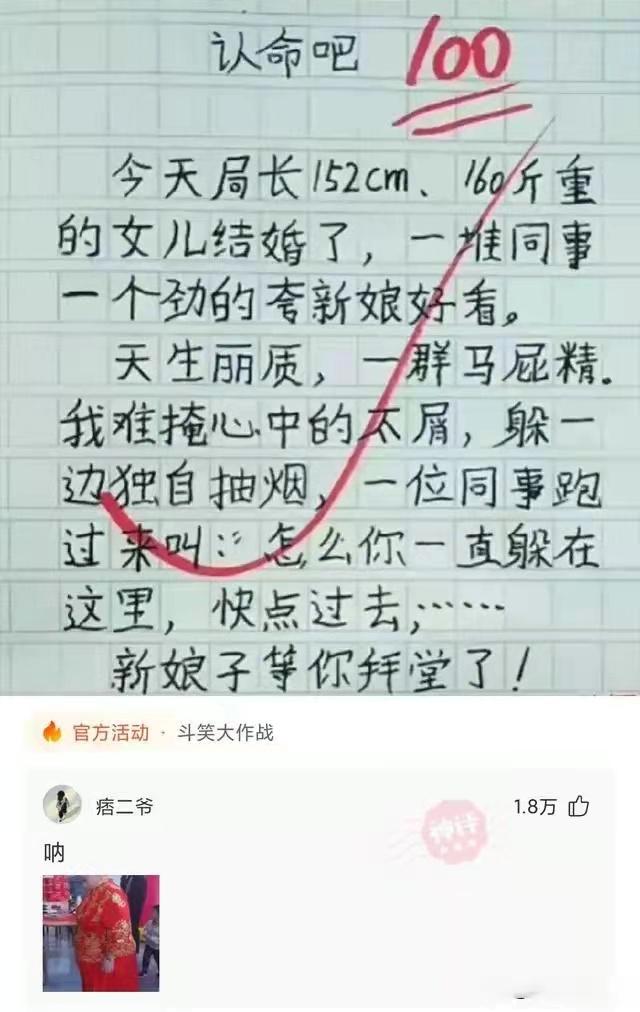 认命吧 100
今天局长152cm、160斤重
的女儿结婚了，一堆同事
一个劲的夸新娘好看。
天生丽质，一群马屁精.
我难掩心中的不屑，躲一
边独自抽烟，一位同事跑
过来叫：：怎么你一直躲在
这里，快点过去，……
新娘子等你拜堂了！
官方活动 · 斗笑大作战
痞二爷 1.8万
神评
呐